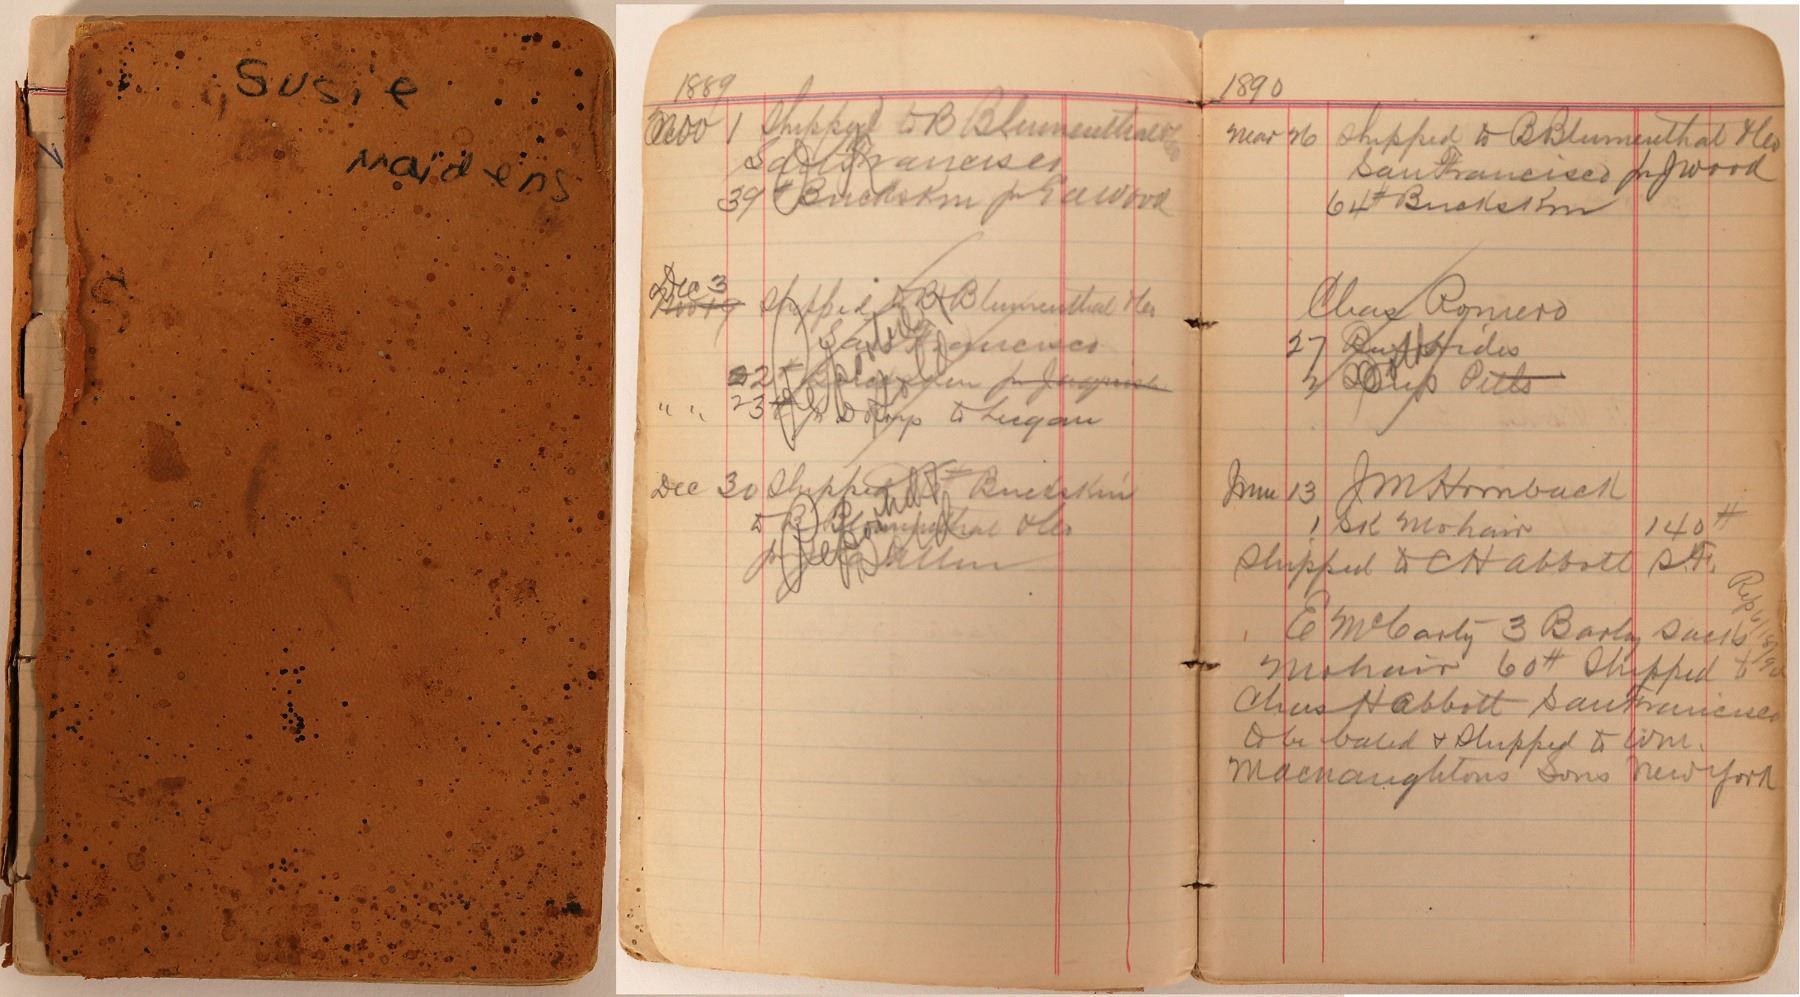 Susie
Maidens
1889
Nov 1 Shipped to B Blumenthal & Co
San Francisco
39# Buckskin for E A Wood
Dec 3
Shipped to B Blumenthal & Co
San Francisco
22# Buckskin for
" " 23# for to Logan
Dec 30 Shipped # Buckskin
to B Blumenthal & Co
for Allen
1890
Mar 26 Shipped to B Blumenthal & Co
San Francisco for J Wood
64# Buckskin
Chas Romero
27 Hides
2 Pelts
June 13 J M Hornback
1 SK Mohair 140#
Shipped to C H Abbott S.F.
E McCarty 3 Barly Sacks
Mohair 60# Shipped to
Chas H Abbott San Francisco
to be baled & Shipped to Wm.
Macnaughtons Sons New York